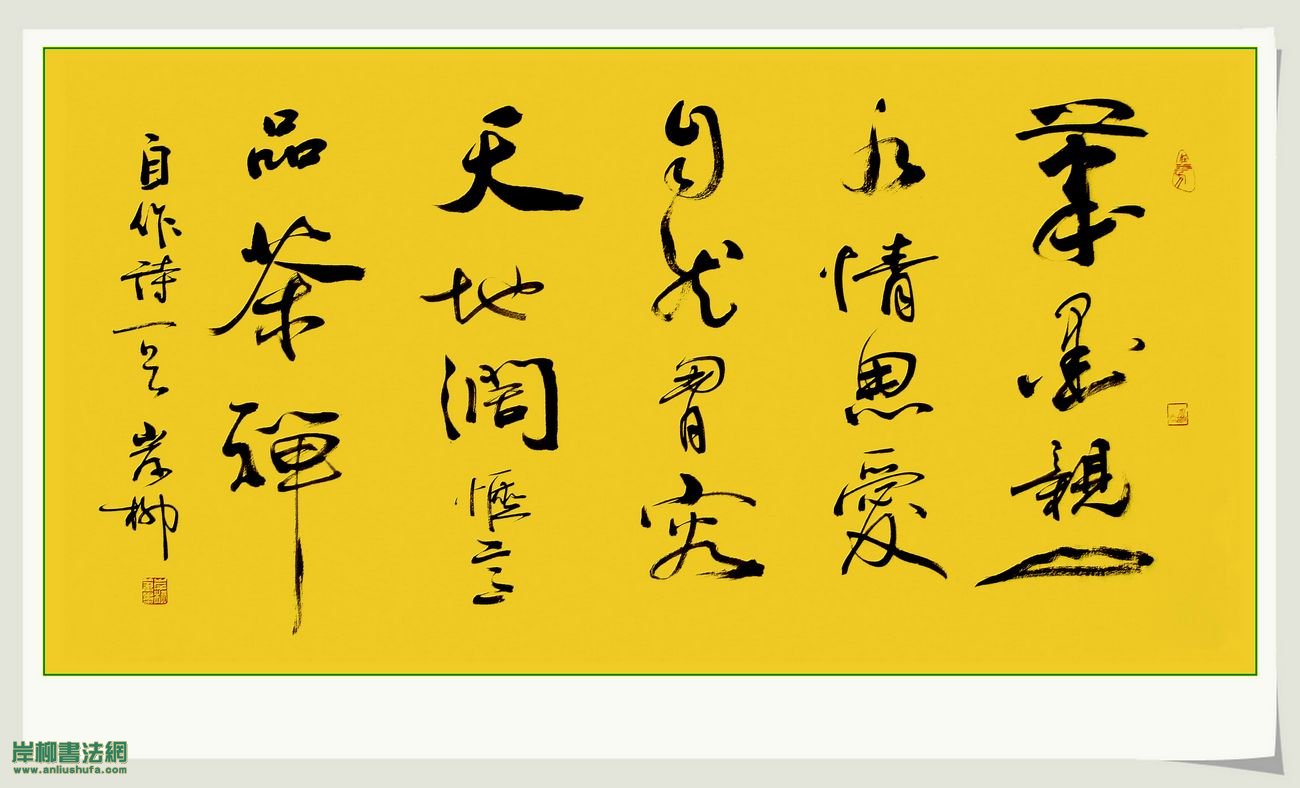 筆墨親山
水情思愛
自然胷容
天地濶愜意
品茶禪
自作詩一首 岸柳
岸柳書法網
www.anliushufa.com